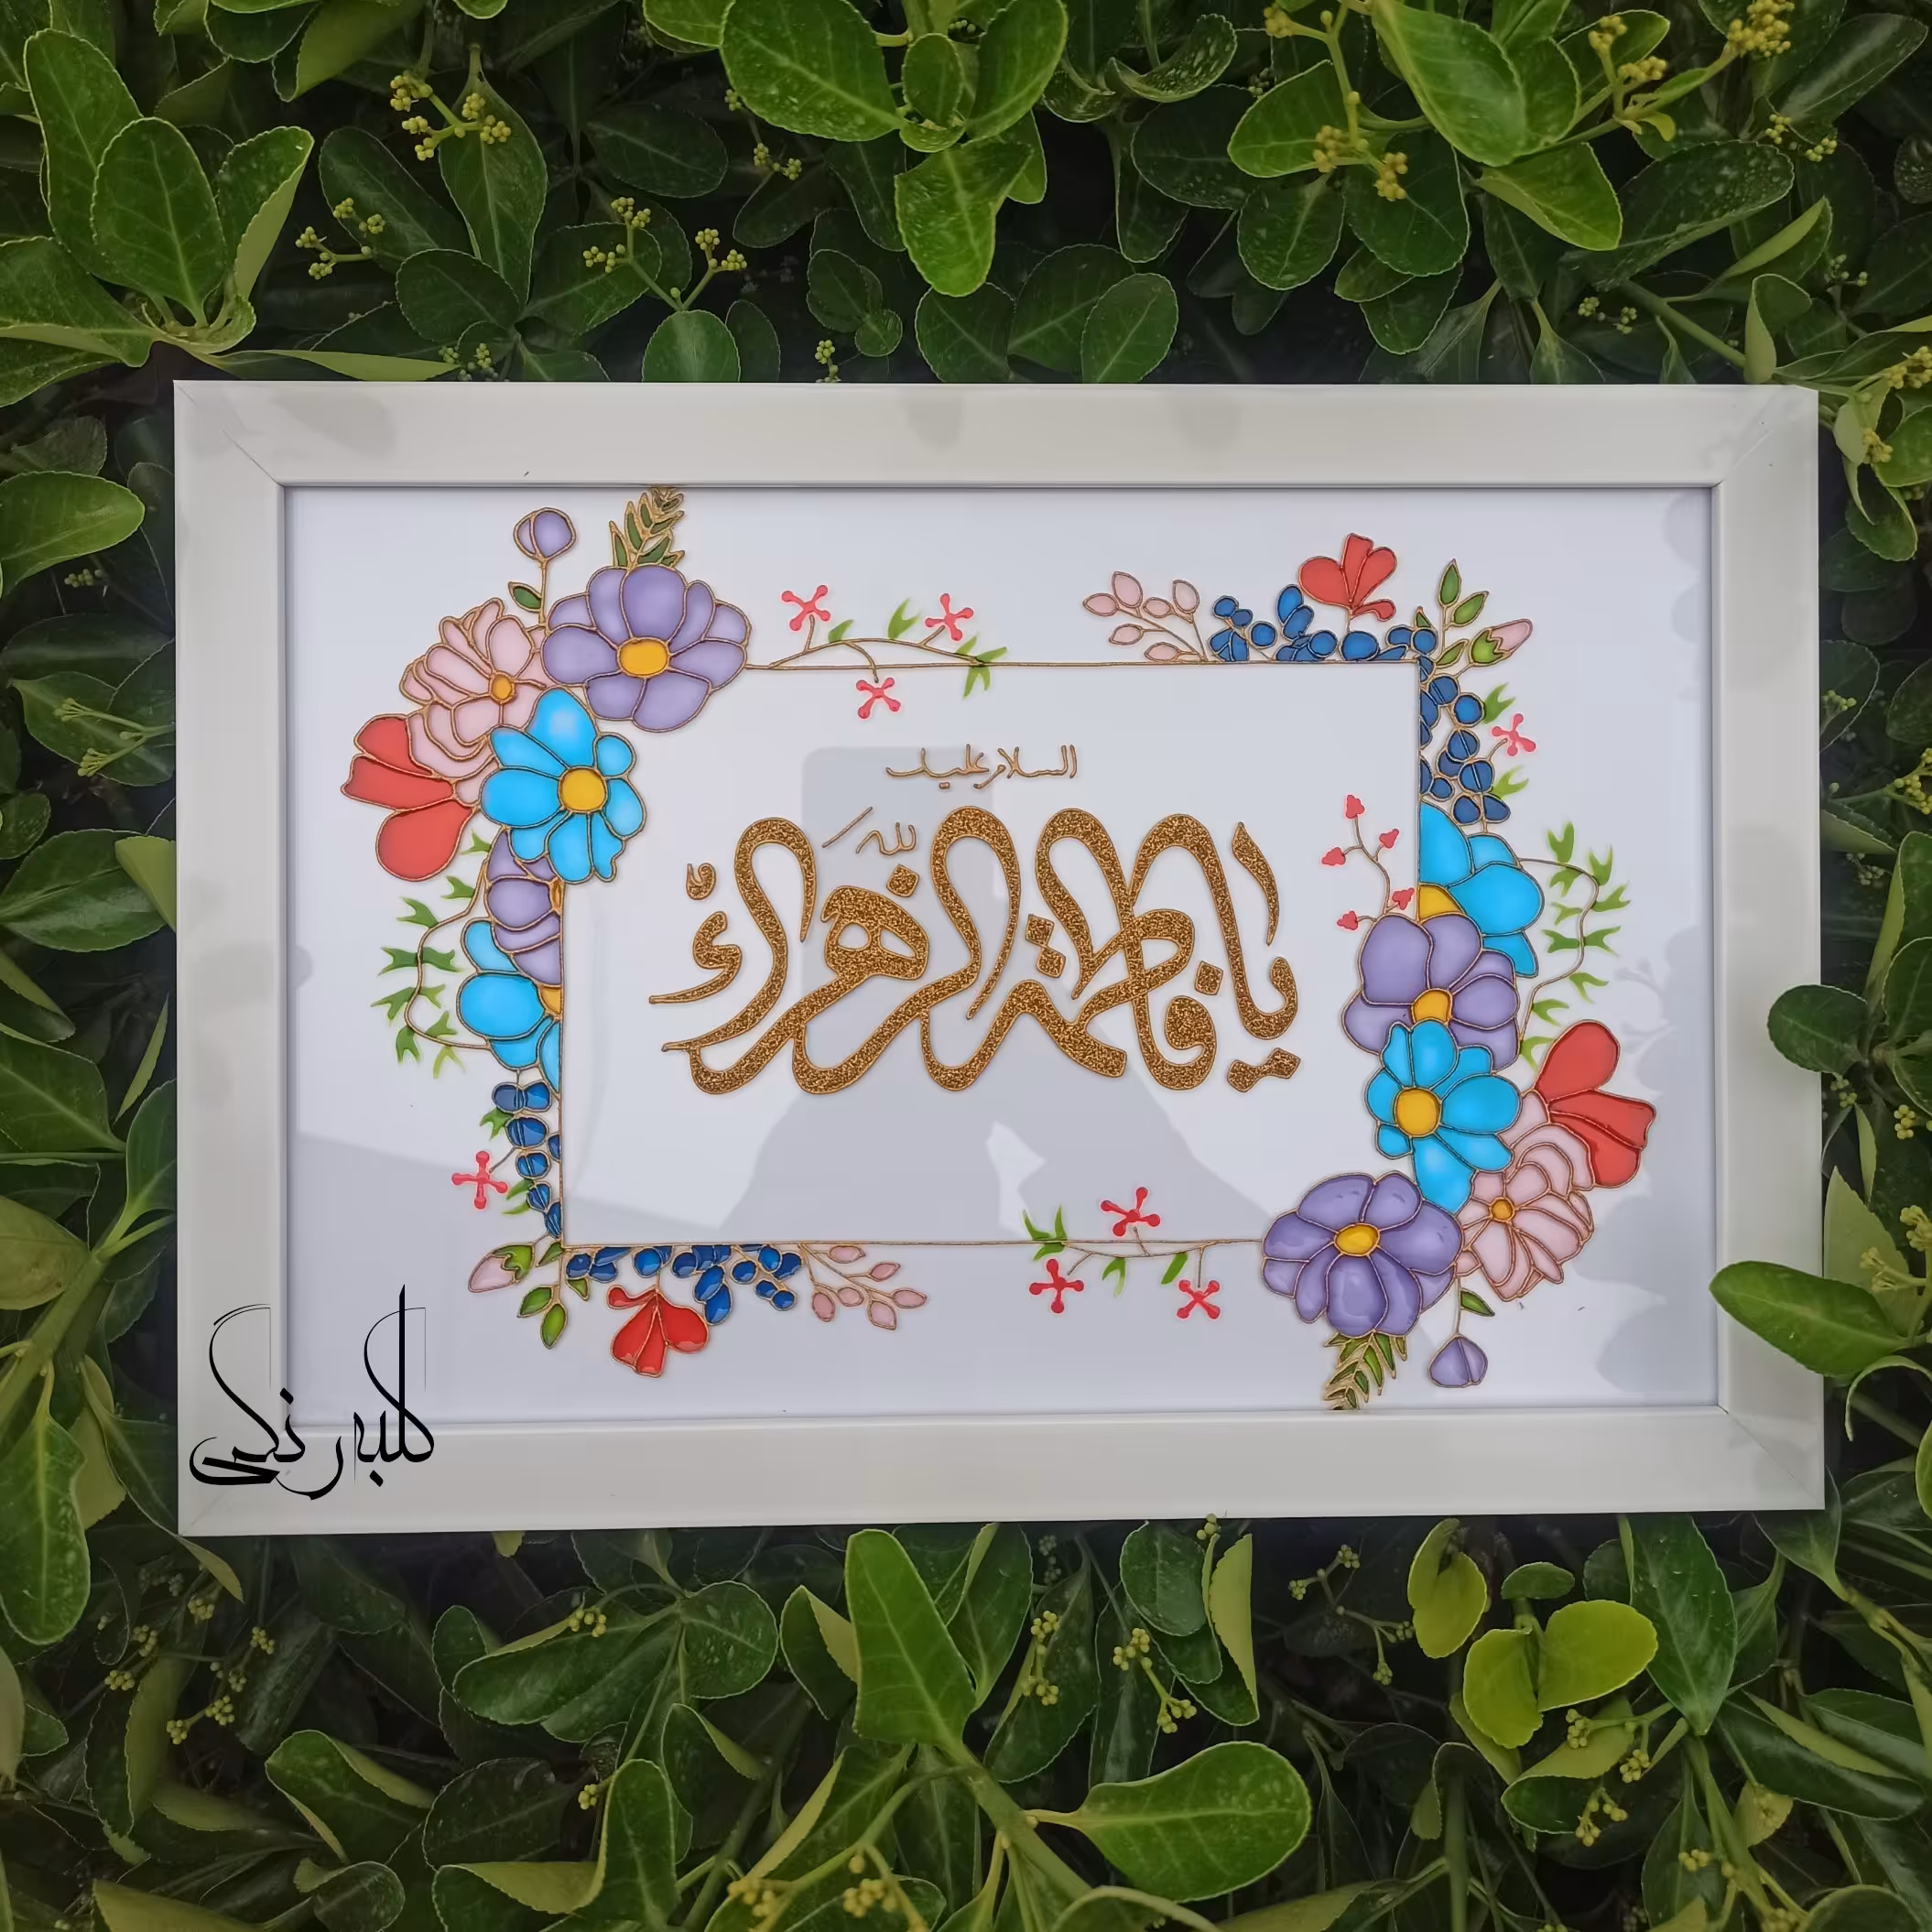 السلام علیک
یا فاطمة الزهراء
کلبه رنگی